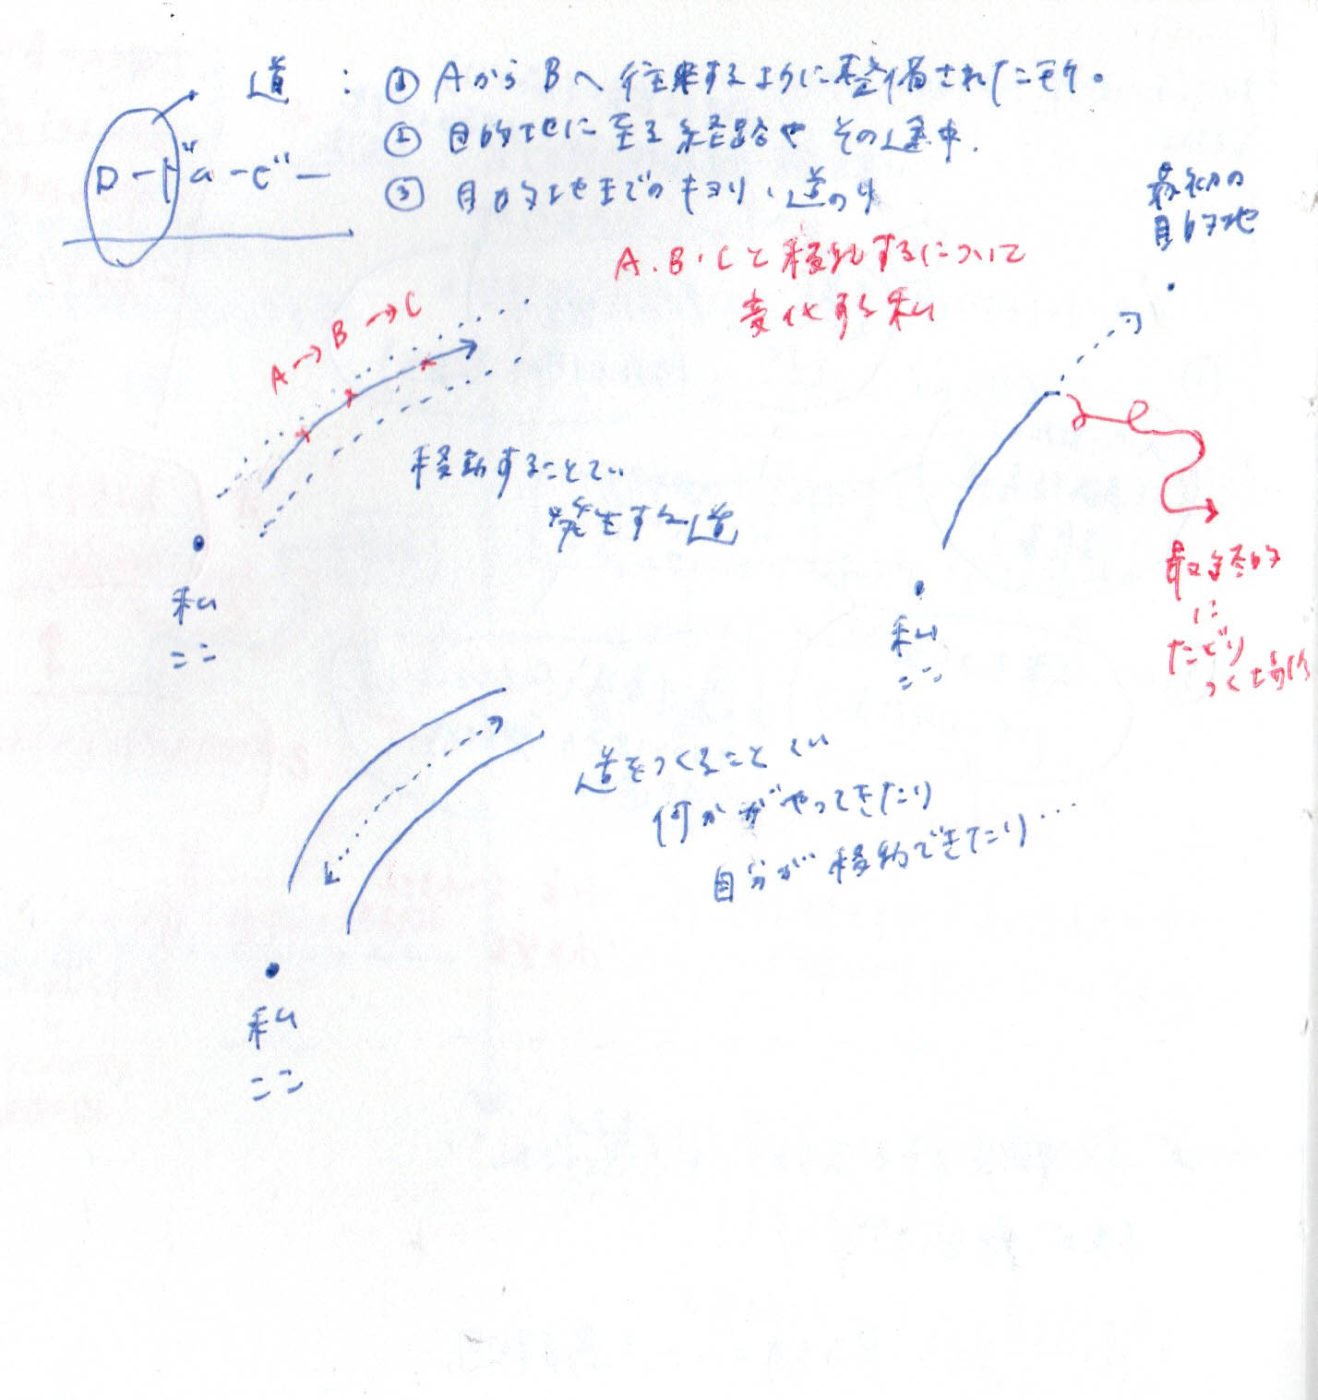 道 : ① AからBへ往来するように整備されたモノ。
② 目的地に至る経路や その途中.
③ 目的地までのキョリ、道のり
ロード"a-c"ー
最初の
目的地
A.B.Cと移動するについて
変化する私
A→B→C
移動することでい
発生する道
私
ここ
私
ここ
最終的
に
たどり
つく場所
道をつくること
何かがやってきたり
自分が移動できたり…
私
ここ